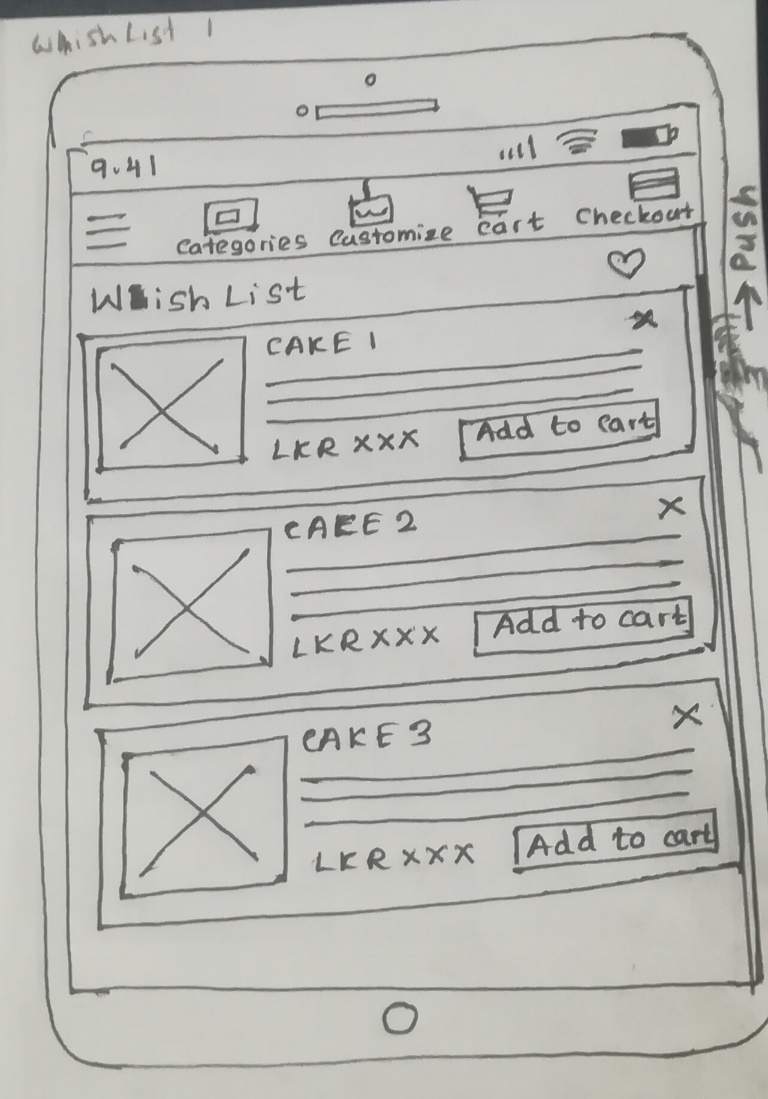 Whish List 1
9.41
Categories Customize Cart Checkout
Whish List
CAKE 1
X
LKR XXX Add to cart
CAKE 2
X
LKR XXX Add to cart
CAKE 3
X
LKR XXX Add to cart
push